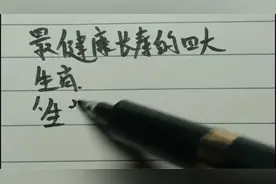 最健康长寿的四大
生肖
生